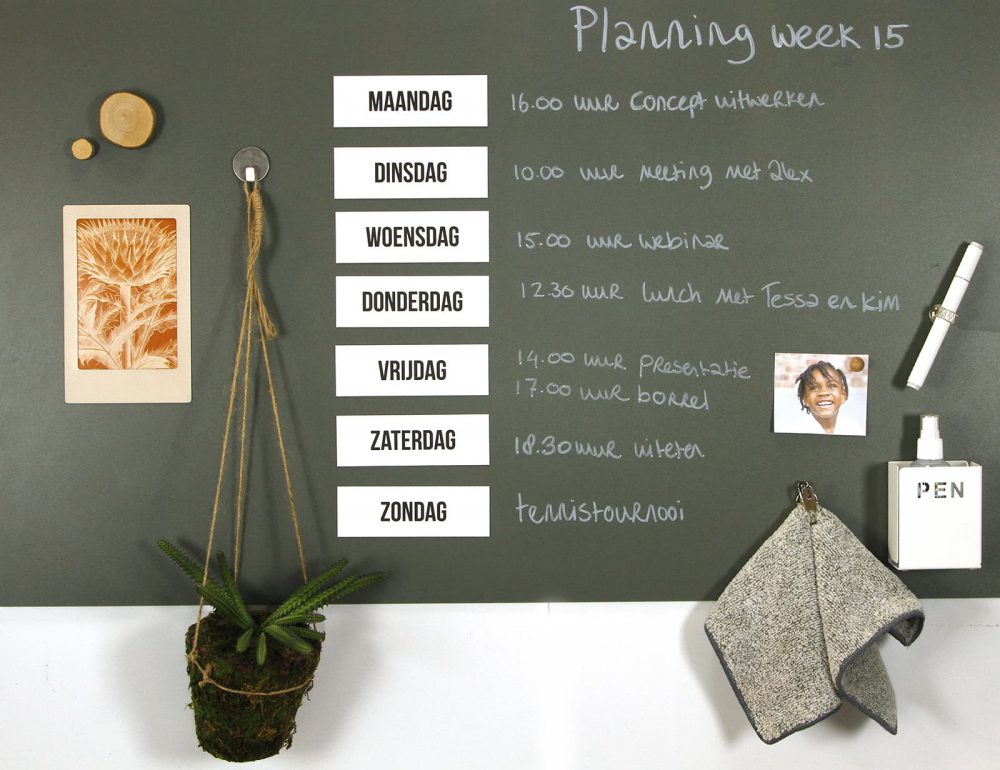 Planning week 15
MAANDAG 16.00 uur concept uitwerken
DINSDAG 10.00 uur meeting met Alex
WOENSDAG 15.00 uur webinar
DONDERDAG 12.30 uur lunch met Tessa en Kim
VRIJDAG 14.00 uur presentatie
17.00 uur borrel
ZATERDAG 18.30 uur uiteten
ZONDAG tennistournooi
PEN